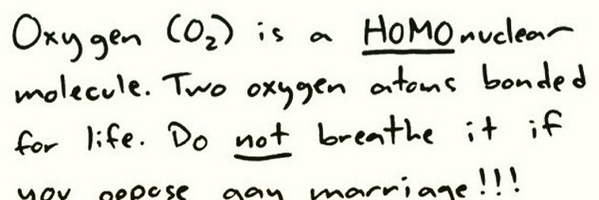 Oxygen (O₂) is a HOMOnuclear
molecule. Two oxygen atoms bonded
for life. Do not breathe it if
you oppose gay marriage!!!